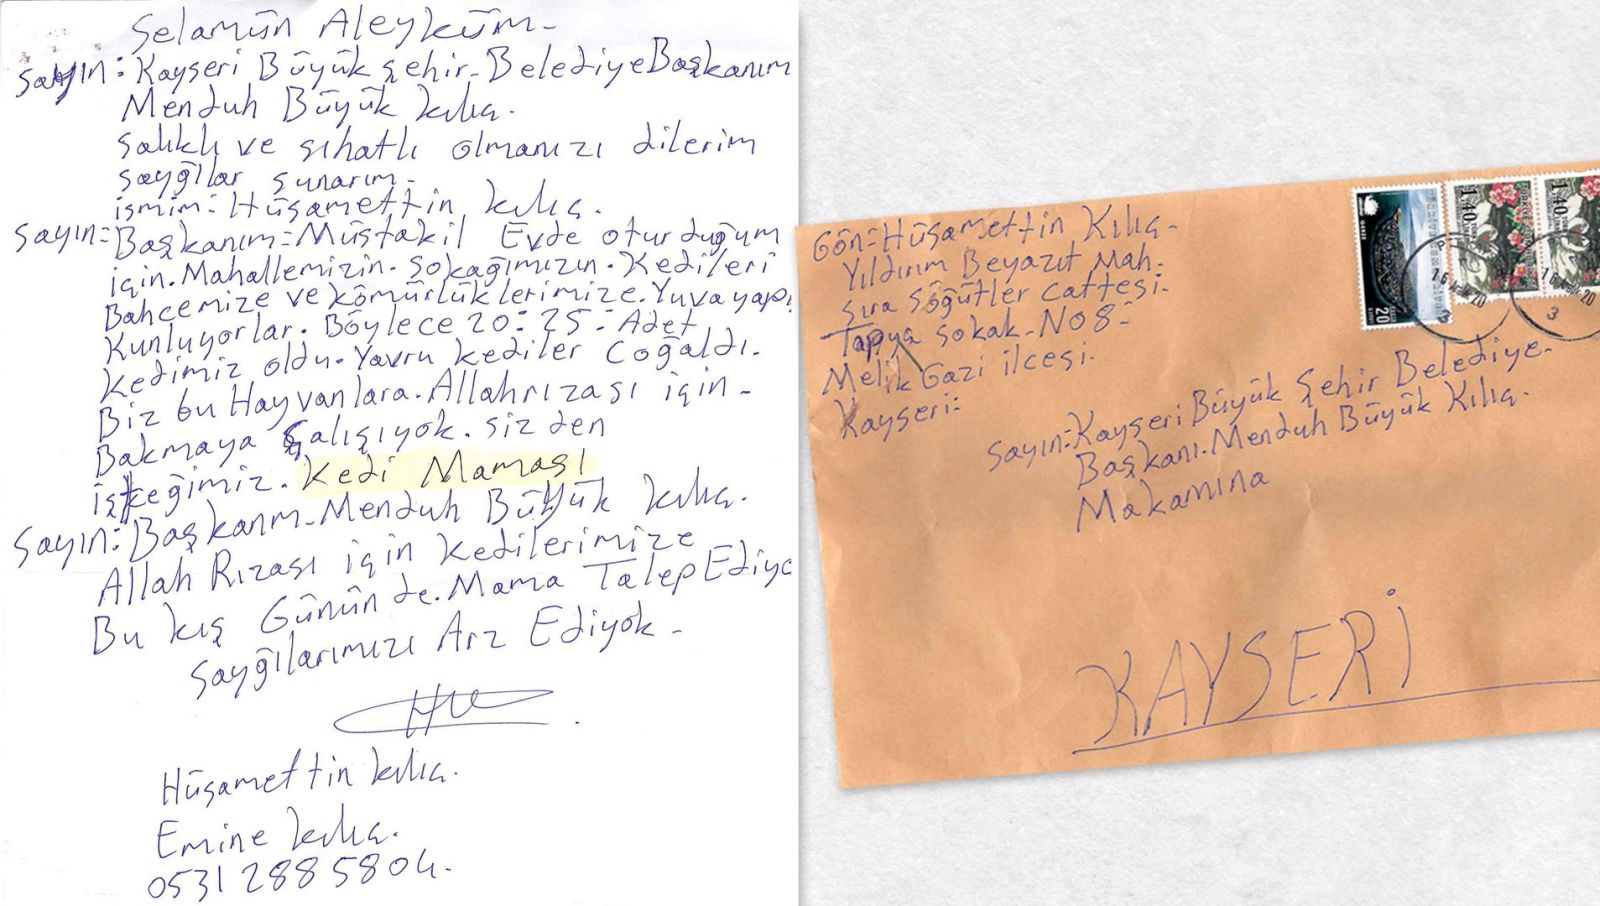 Selamün Aleyküm-
Sayın: Kayseri Büyük Şehir-Belediye Başkanım
Menduh Büyük Kılıç.
Salıklı ve sıhatlı olmanızı dilerim
Sayğılar sunarım-
ismim: Hüsamettin Kılıç.
Sayın: Başkanım=Müstakil Evde oturduğum
için. Mahallemizin. Sokağımızın. Kedileri
Bahcemize ve Kömürlüklerimize. Yuva yapı
Kunluyorlar. Böylece 20: 25: Adet
Kedimiz oldu. Yavru kediler Coğaldı.
Biz bu Hayvanlara. Allahrızası için-
Bakmaya Çalışıyok. Sizden
isteğimiz. Kedi Maması
Sayın: Başkanım-Menduh Büyük Kılıç.
Allah Rızası için Kedilerimize
Bu kış Günün de. Mama Talep Ediyo
Sayğılarımızı Arz Ediyok-
Hüsamettin Kılıç.
Emine Kılıç.
0531 288 5804.
Gön=Hüsamettin Kılıç-
Yıldırım Beyazıt Mah-
Sıra Söğütler Cattesi-
Tapya Sokak-No 8-
Melik Gazi ilcesi-
Kayseri:
Sayın=Kayseri Büyük Şehir Belediye-
Başkanı. Menduh Büyük Kılıç.
Makamına
KAYSERİ
20
140
140
3